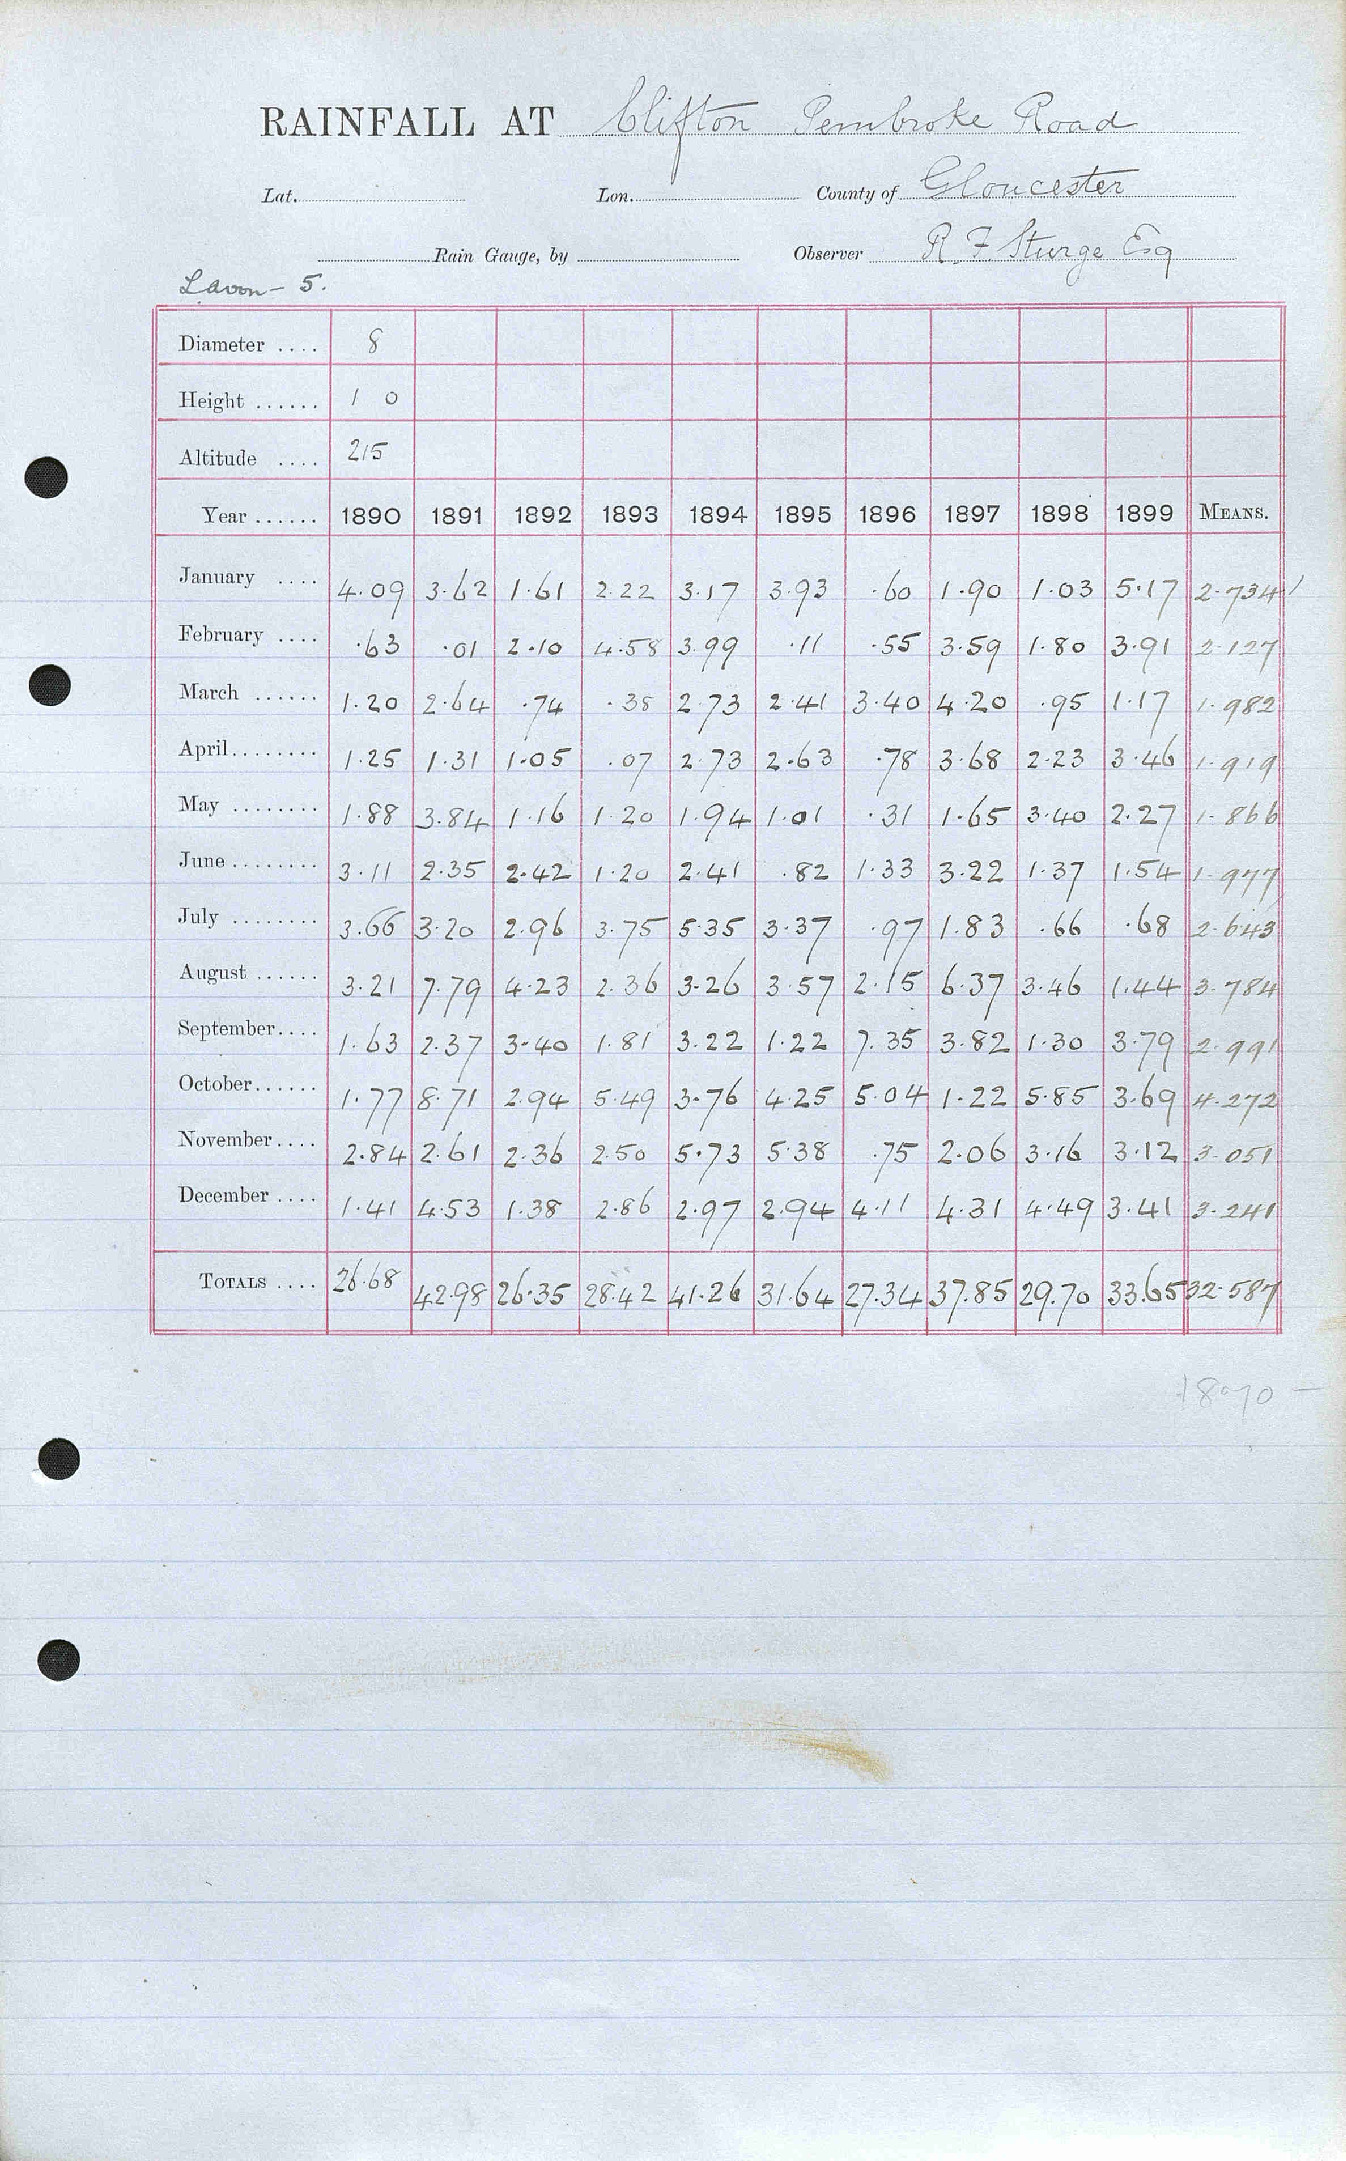 RAINFALL AT Clifton Pembroke Road
Lat. Lon. County of Gloucester
Rain Gauge, by Observer R. F. Sturge Esq
5.
Diameter .... 8
Height ...... 1 0
Altitude .... 215
Year ...... 1890 1891 1892 1893 1894 1895 1896 1897 1898 1899 MEANS.
January .... 4.09 3.62 1.61 2.22 3.17 3.93 .60 1.90 1.03 5.17 2.734
February .... .63 .01 2.10 4.58 3.99 .11 .55 3.59 1.80 3.91 2.127
March ...... 1.20 2.64 .74 .38 2.73 2.41 3.40 4.20 .95 1.17 1.982
April........ 1.25 1.31 1.05 .07 2.73 2.63 .78 3.68 2.23 3.46 1.919
May ........ 1.88 3.84 1.16 1.20 1.94 1.01 .31 1.65 3.40 2.27 1.866
June........ 3.11 2.35 2.42 1.20 2.41 .82 1.33 3.22 1.37 1.54 1.977
July ........ 3.66 3.20 2.96 3.75 5.35 3.37 .97 1.83 .66 .68 2.643
August ...... 3.21 7.79 4.23 2.36 3.26 3.57 2.15 6.37 3.46 1.44 3.784
September.... 1.63 2.37 3.40 1.81 3.22 1.22 7.35 3.82 1.30 3.79 2.991
October...... 1.77 8.71 2.94 5.49 3.76 4.25 5.04 1.22 5.85 3.69 4.272
November.... 2.84 2.61 2.36 2.50 5.73 5.38 .75 2.06 3.16 3.12 3.051
December .... 1.41 4.53 1.38 2.86 2.97 2.94 4.11 4.31 4.49 3.41 3.241
TOTALS .... 26.68 42.98 26.35 28.42 41.26 31.64 27.34 37.85 29.70 33.65 32.587
1870 –